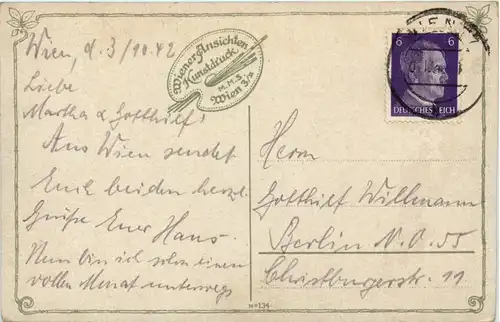 Wien, d. 3/10.42
Liebe
Martha & Gotthilf!
Aus Wien sendet
Euch beiden herzl.
Grüße Euer Hans.
Nun bin ich schon einen
vollen Monat unterwegs
Wiener Ansichten
Kunstdruck
M.M.S.
Wien 3/2
6 6
DEUTSCHES REICH
WIEN
Herrn
Gotthilf Willmann
Berlin N.O. 55
Christburgerstr. 11
№ 134